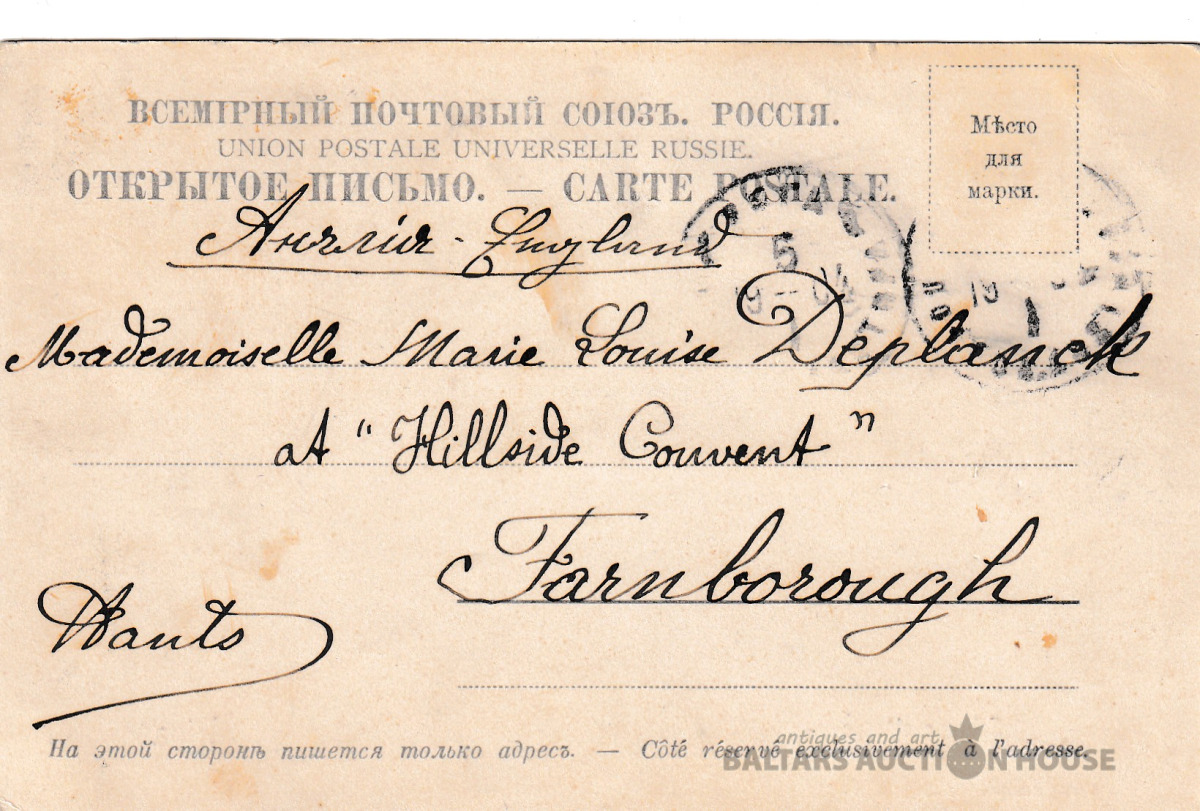 ВСЕМІРНЫЙ ПОЧТОВЫЙ СОЮЗЪ. РОССІЯ.
UNION POSTALE UNIVERSELLE RUSSIE.
ОТКРЫТОЕ ПИСЬМО. — CARTE POSTALE.
Мѣсто
для
марки.
Англія - England
5
19
1
Mademoiselle Marie Louise Deplanck
at "Hillside Convent"
Farnborough
Hants
На этой сторонѣ пишется только адресъ. — Côté réservé exclusivement à l'adresse.
antiques and art
BALTARS AUCTION HOUSE